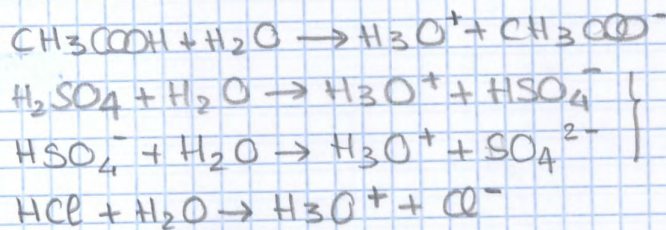 CH3COOH + H2O → H3O⁺ + CH3COO⁻
H2SO4 + H2O → H3O⁺ + HSO4⁻
HSO4⁻ + H2O → H3O⁺ + SO4²⁻
HCl + H2O → H3O⁺ + Cl⁻